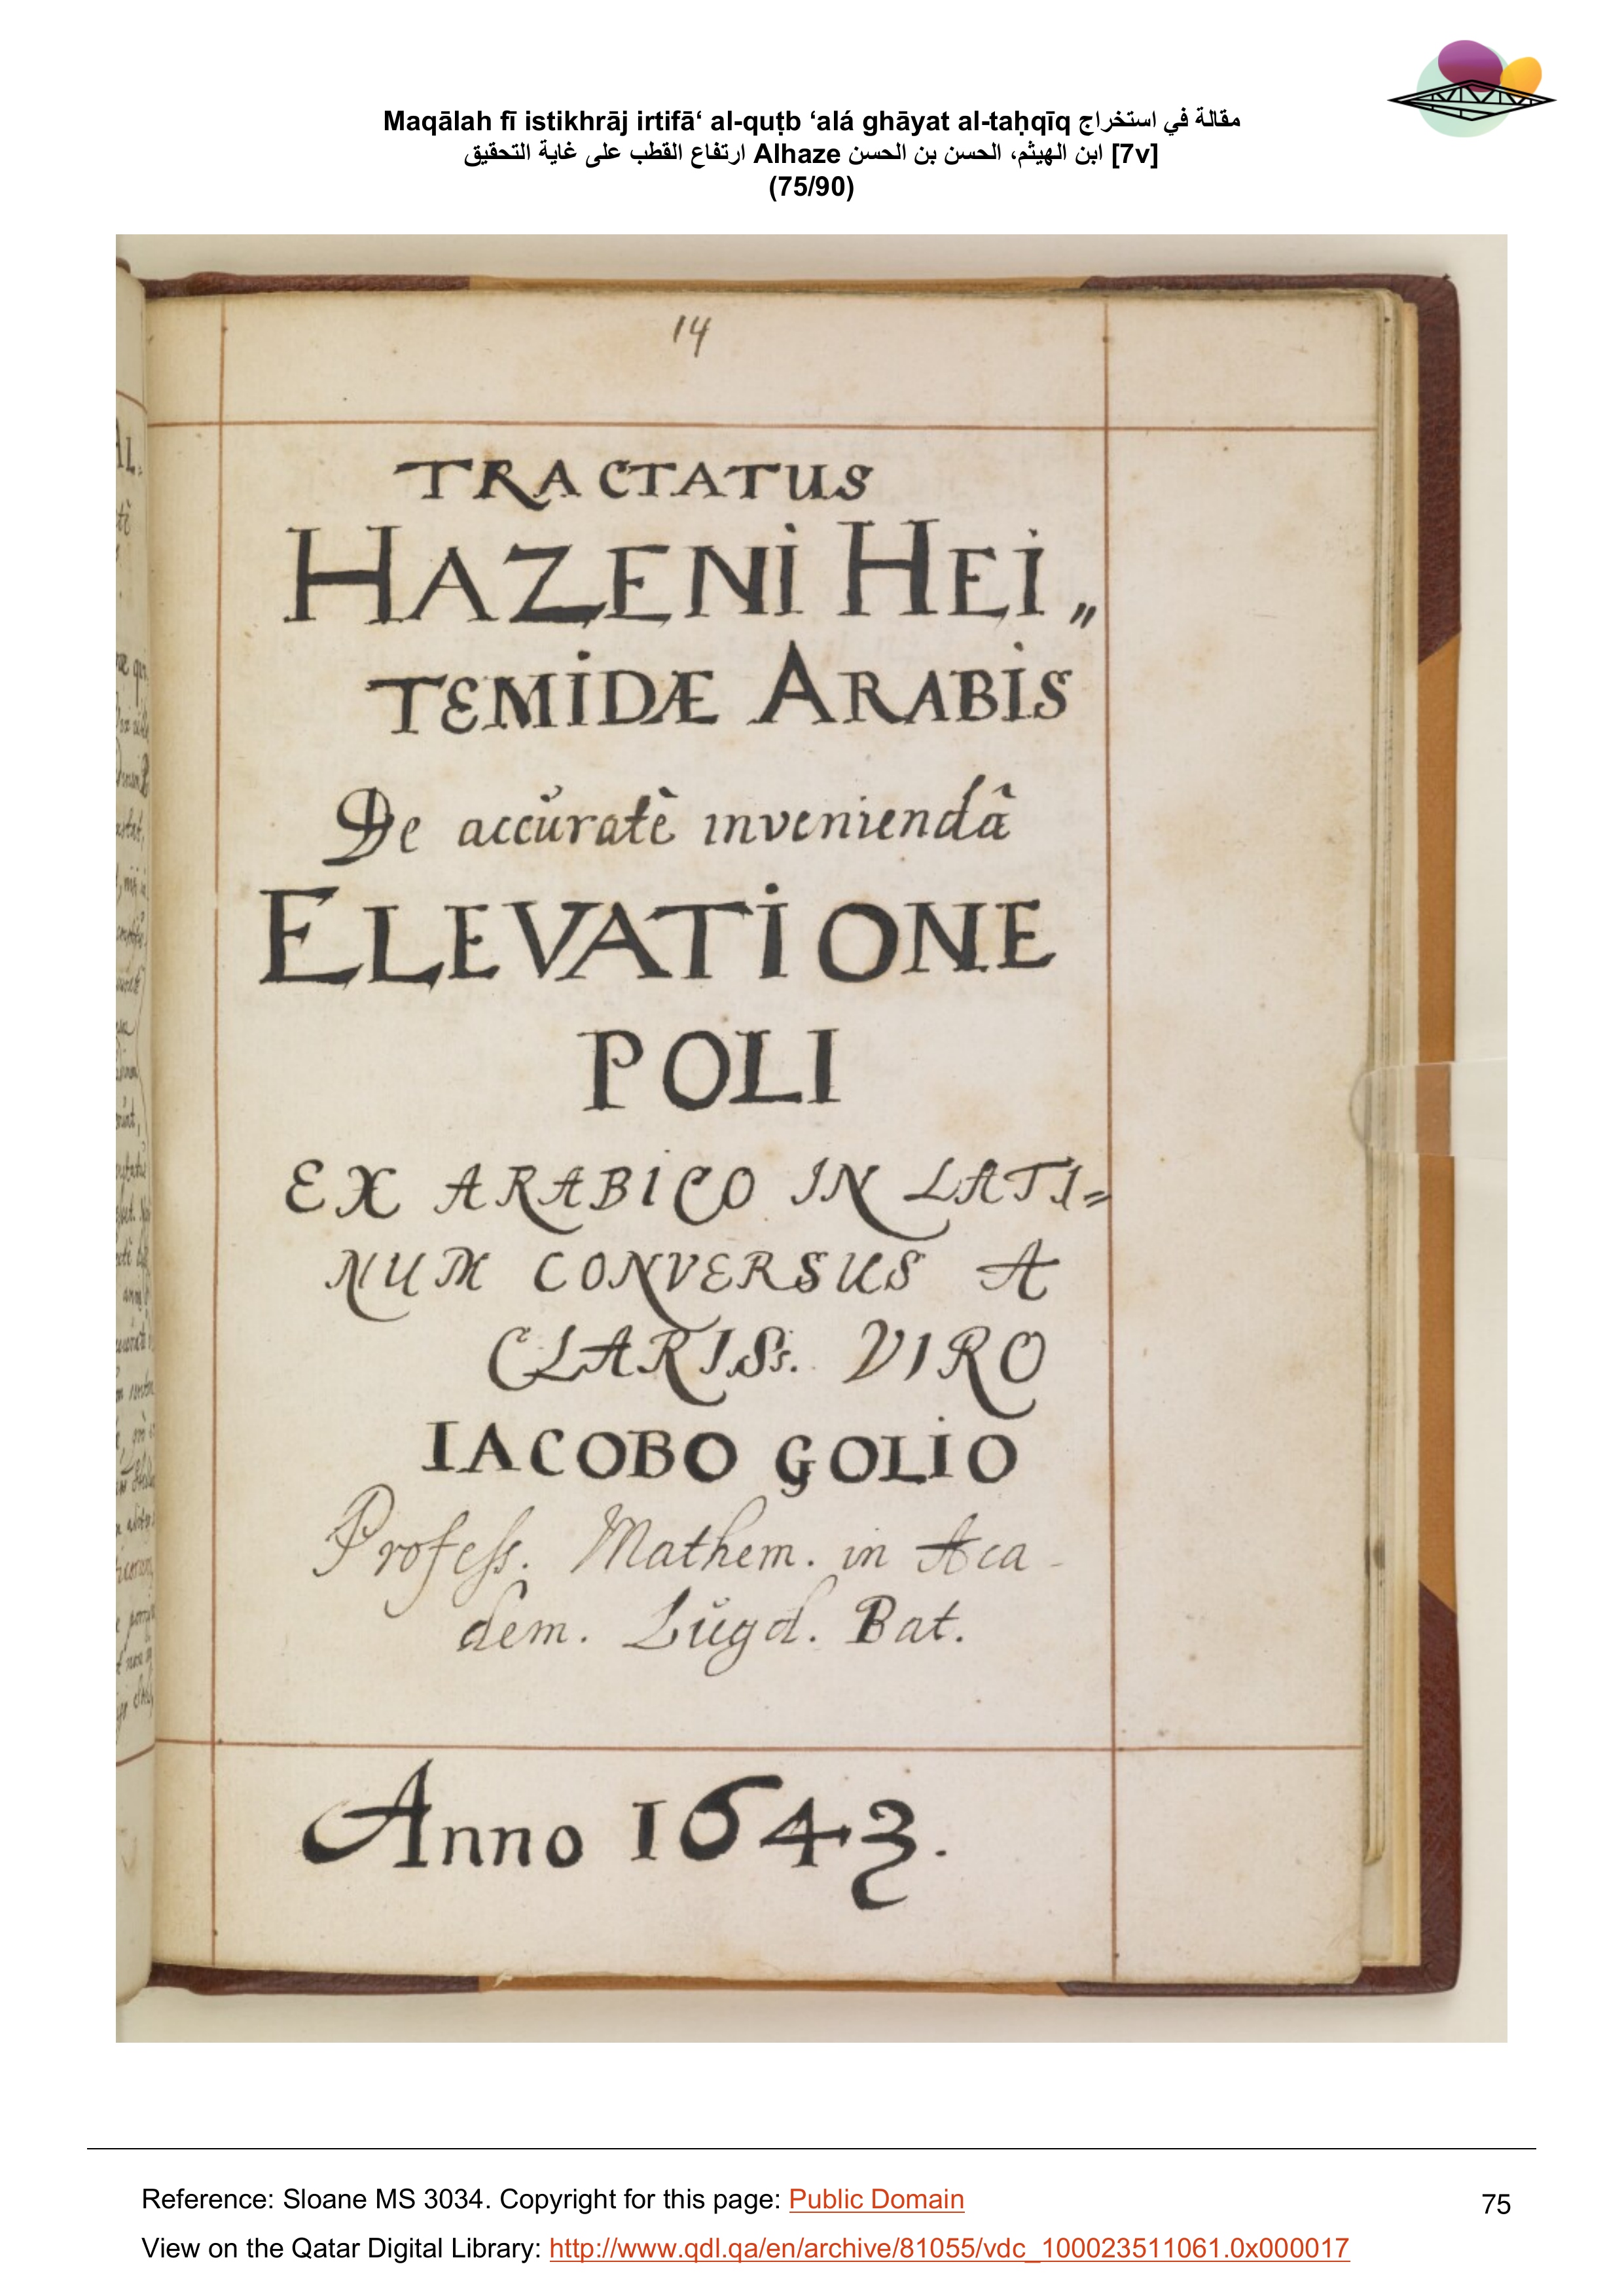 Maqālah fī istikhrāj irtifā‘ al-quṭb ‘alá ghāyat al-taḥqīq مقالة في استخراج
ارتفاع القطب على غاية التحقيق Alhaze ابن الهيثم، الحسن بن الحسن [7v]
(75/90)
14
TRACTATUS
HAZENI HEI„
TEMIDÆ ARABIS
De accŭratè inveniendâ
ELEVATIONE
POLI
EX ARABICO IN LATI=
NUM CONVERSUS A
CLARISS. VIRO
IACOBO GOLIO
Profess. Mathem. in Aca-
dem. Lŭgd. Bat.
Anno 1643.
Reference: Sloane MS 3034. Copyright for this page: Public Domain
75
View on the Qatar Digital Library: http://www.qdl.qa/en/archive/81055/vdc_100023511061.0x000017